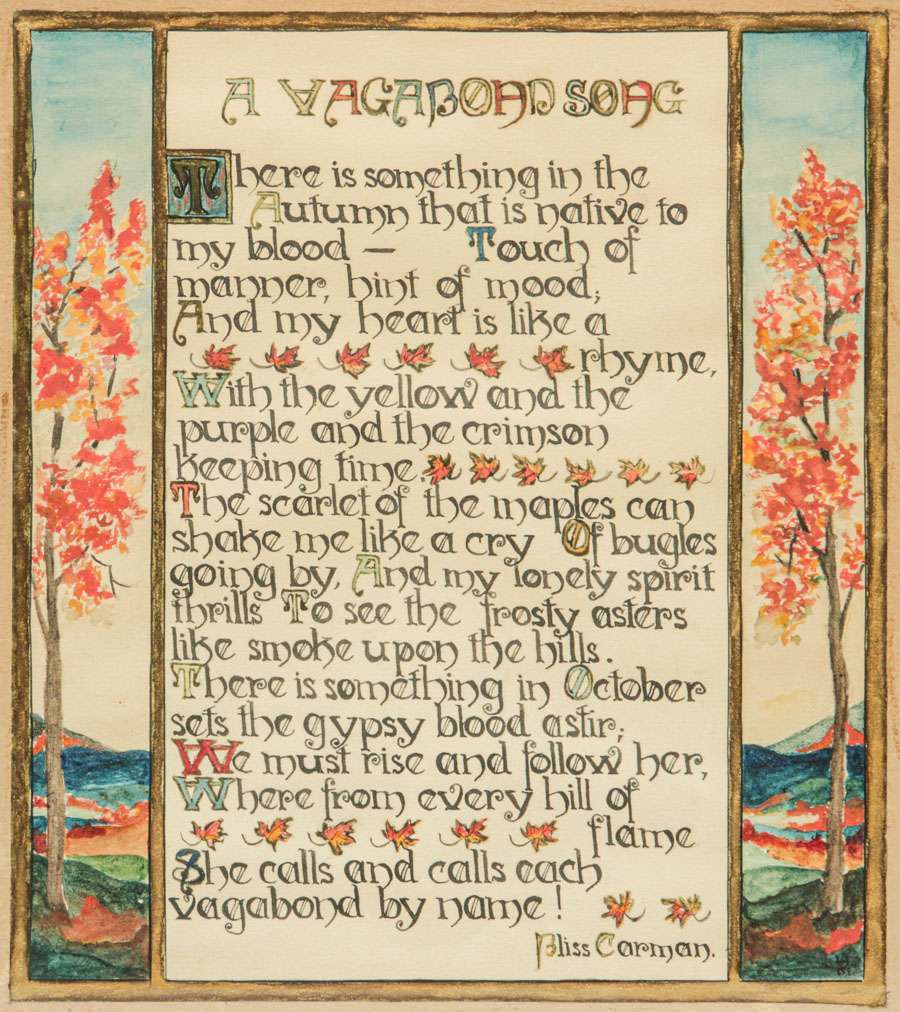 A VAGABOND SONG
There is something in the
Autumn that is native to
my blood — Touch of
manner, hint of mood;
And my heart is like a
rhyme,
With the yellow and the
purple and the crimson
keeping time.
The scarlet of the maples can
shake me like a cry Of bugles
going by, And my lonely spirit
thrills To see the frosty asters
like smoke upon the hills.
There is something in October
sets the gypsy blood astir;
We must rise and follow her,
Where from every hill of
flame
She calls and calls each
vagabond by name!
Bliss Carman.